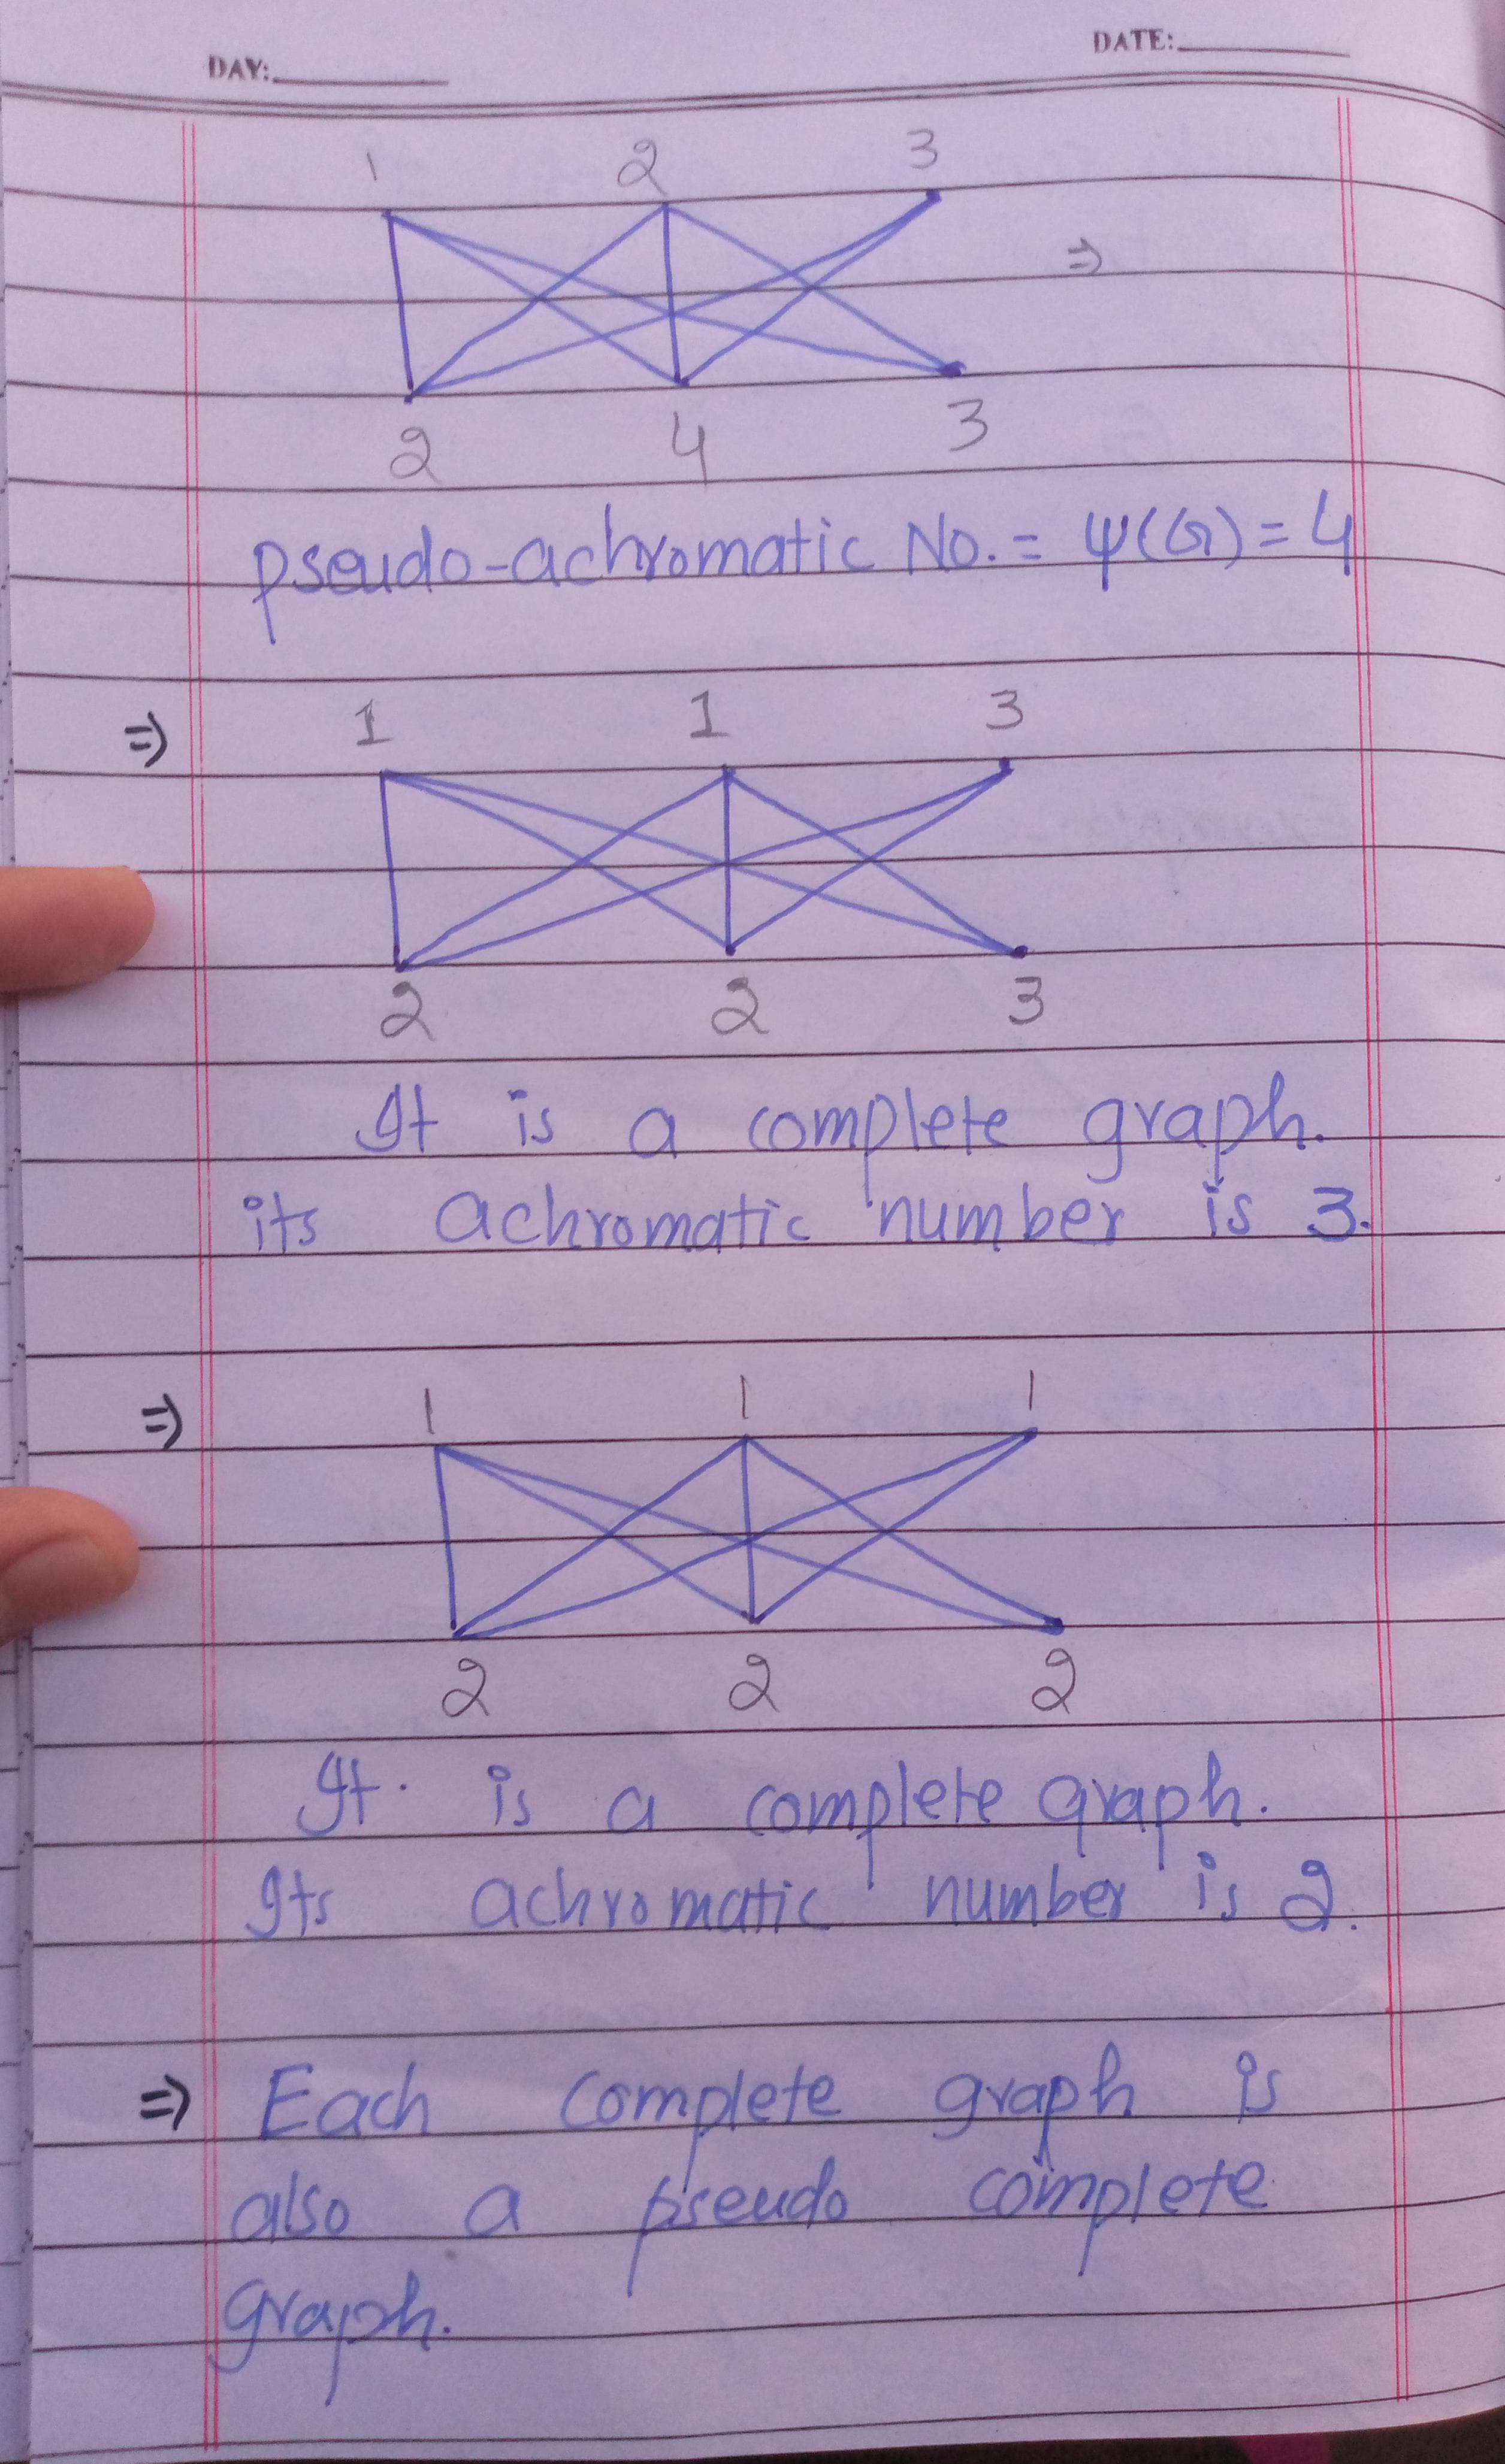 DAY:
DATE:
1 2 3
⇒
2 4 3
pseudo-achromatic No. = ψ(G) = 4
⇒ 1 1 3
2 2 3
It is a complete graph.
its achromatic number is 3.
⇒ 1 1 1
2 2 2
It. is a complete graph.
Its achromatic number is 2.
⇒ Each complete graph is
also a pseudo complete
graph.